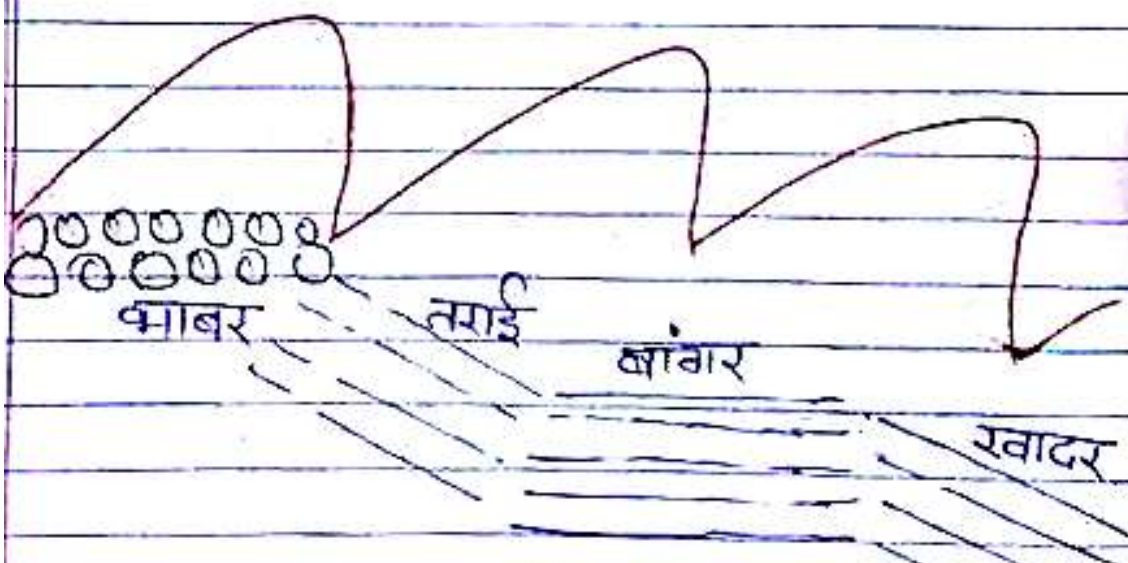 भाबर
तराई
बांगर
खादर